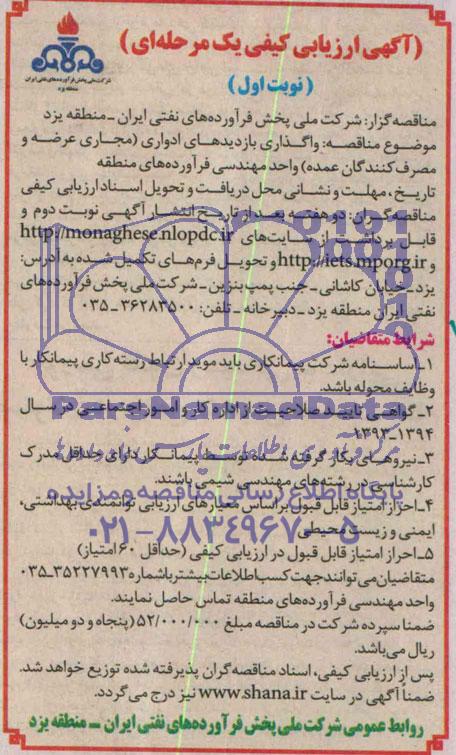 (آگهی ارزیابی کیفی یک مرحله‌ای)
شرکت ملی پخش فرآورده‌های نفتی ایران
منطقه یزد
(نوبت اول)
مناقصه‌گزار: شرکت ملی پخش فرآورده‌های نفتی ایران ـ منطقه یزد
موضوع مناقصه: واگذاری بازدیدهای ادواری (مجاری عرضه و
مصرف‌کنندگان عمده) واحد مهندسی فرآورده‌های منطقه
تاریخ، مهلت و نشانی محل دریافت و تحویل اسناد ارزیابی کیفی
مناقصه‌گران: دو هفته بعد از تاریخ انتشار آگهی نوبت دوم و
قابل برداشت از سایت‌های http://monaghese.nlopdc.ir
و http://iets.mporg.ir و تحویل فرم‌های تکمیل شده به آدرس:
یزد ـ خیابان کاشانی ـ جنب پمپ بنزین ـ شرکت ملی پخش فرآورده‌های
نفتی ایران منطقه یزد ـ دبیرخانه ـ تلفن: ۳۶۲۸۳۵۰۰ ـ ۰۳۵
شرایط متقاضیان:
۱ـ اساسنامه شرکت پیمانکاری باید موید ارتباط رسته کاری پیمانکار با
وظایف محوله باشد.
۲ـ گواهی تایید صلاحیت از اداره کار و امور اجتماعی در سال
۱۳۹۴ـ۱۳۹۳
۳ـ نیروهای بکار گرفته شده توسط پیمانکار دارای حداقل مدرک
کارشناسی در رشته‌های مهندسی شیمی باشند.
۴ـ احراز امتیاز قابل قبول بر اساس معیارهای ارزیابی توانمندی بهداشتی،
ایمنی و زیست محیطی
۵ـ احراز امتیاز قابل قبول در ارزیابی کیفی (حداقل ۶۰ امتیاز)
متقاضیان می‌توانند جهت کسب اطلاعات بیشتر با شماره ۳۵۲۲۷۹۹۳ـ۰۳۵
واحد مهندسی فرآورده‌های منطقه تماس حاصل نمایند.
ضمنا سپرده شرکت در مناقصه مبلغ ۵۲/۰۰۰/۰۰۰ (پنجاه و دو میلیون)
ریال می‌باشد.
پس از ارزیابی کیفی، اسناد مناقصه‌گران پذیرفته شده توزیع خواهد شد.
ضمناً آگهی در سایت www.shana.ir نیز درج می‌گردد.
روابط عمومی شرکت ملی پخش فرآورده‌های نفتی ایران ـ منطقه یزد
ParsNamadData
گردآوری اطلاعات پارس نماد داده‌ها
پایگاه اطلاع رسانی مناقصه و مزایده
۰۲۱-۸۸۳۴۹۶۷۰-۵